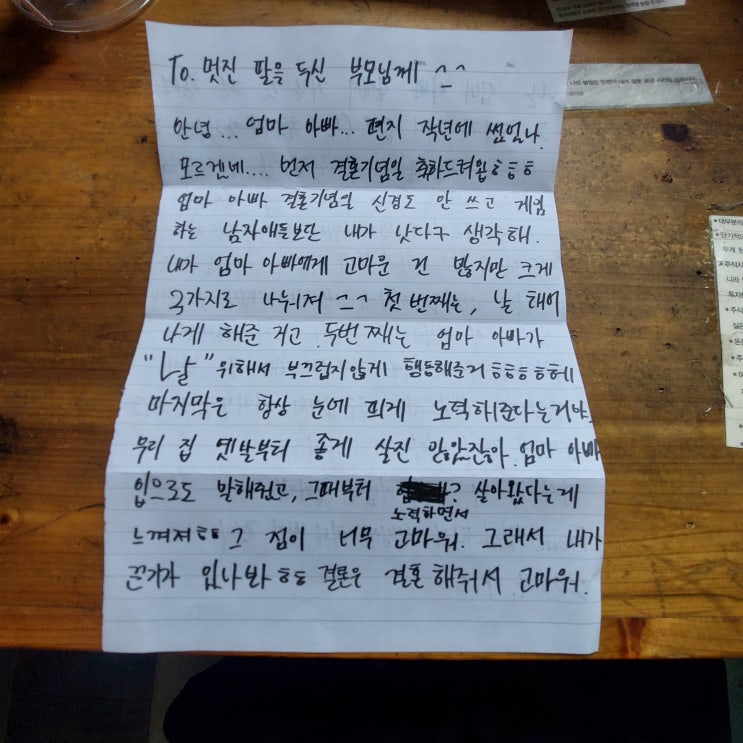 To. 멋진 딸을 두신 부모님께 ^_^
No.
안녕... 엄마 아빠... 편지 작년에 썼었나
모르겠네.... 먼저 결혼기념일 축하드려요ㅎㅎㅎ
엄마 아빠 결혼기념일 신경도 안 쓰고 게임
하는 남자애들보단 내가 낫다구 생각해.
내가 엄마 아빠에게 고마운 건 많지만 크게
3가지로 나뉘져 ^_^ 첫 번째는, 날 태어
나게 해준 거고 두번째는 엄마 아빠가
"날" 위해서 부끄럽지않게 행동해준거 ㅎㅎㅎㅎ헤
마지막은 항상 눈에 띄게 노력해준다는거야.
우리 집 옛날부터 좋게 살진 않았잖아 엄마 아빠
입으로도 말해줬고, 그때부터 ? 살아왔다는게
노력하면서
느껴져ㅎㅎ 그 점이 너무 고마워. 그래서 내가
끈기가 있나봐 ㅎㅎ 결론은 결혼 해줘서 고마워.